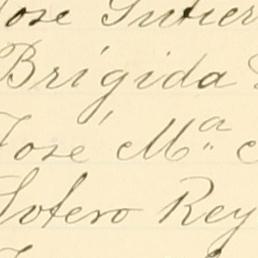 José Gutier
Brígida
José Mª.
Sotero Rey